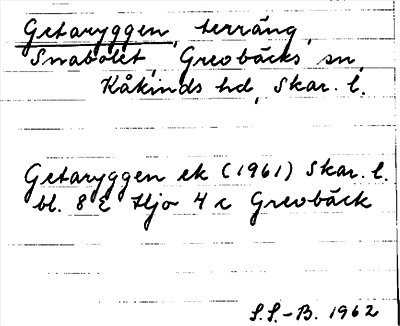 Getaryggen, terräng,
Snabolet, Grevbäcks sn,
Kåkinds hd, Skar. l.
Getaryggen ek (1961) Skar. l.
bl. 8 E Hjo 4 c Grevbäck
S.S.-B. 1962